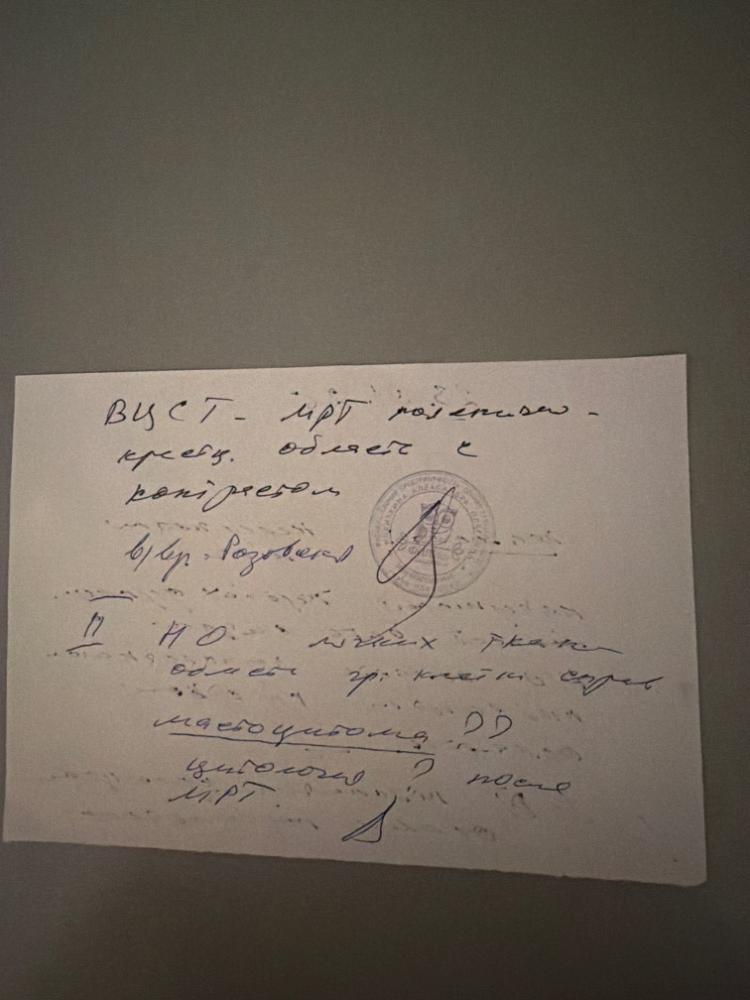 ВЦСТ - МРТ пояснично-
крестц. области с
контрастом
в/вр. Розовская
II НО мягких ткани
области гр. клетки справа
мастоцитома ??
цитология ? после
МРТ